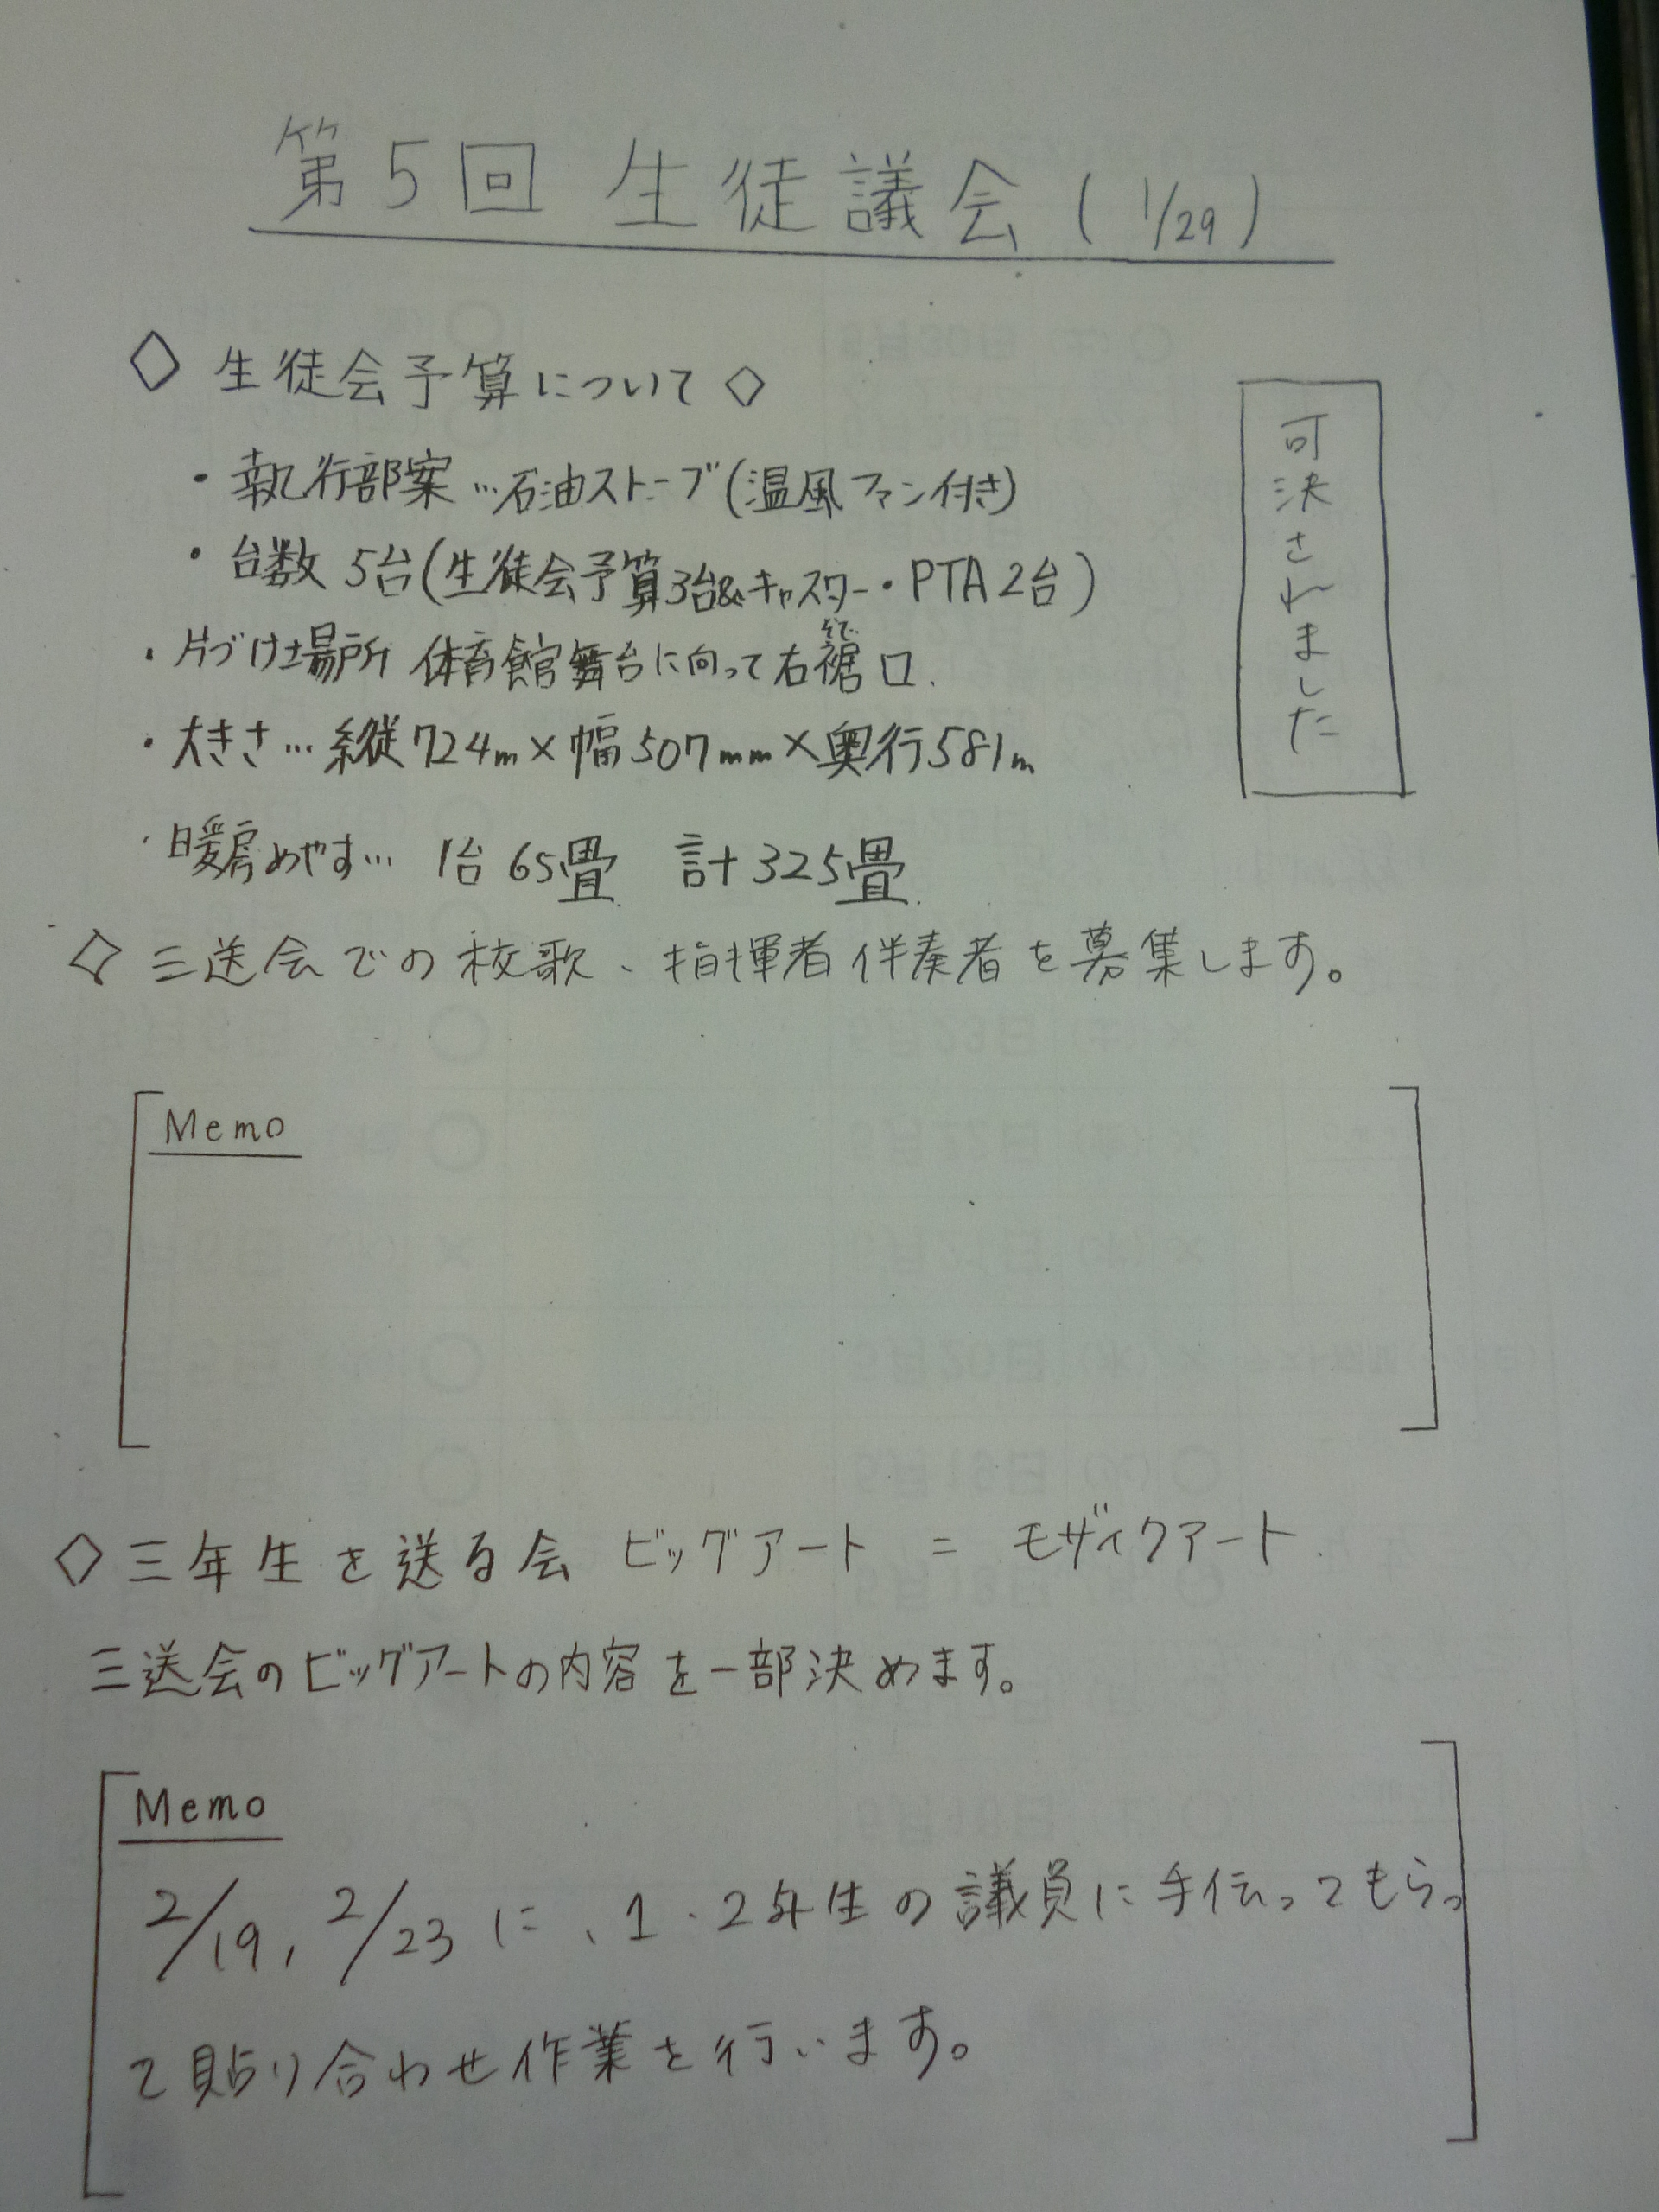 第5回 生徒議会(1/29)
◇ 生徒会予算について ◇
・執行部案…石油ストーブ(温風ファン付き)
・台数 5台(生徒会予算3台&キャスター・PTA2台)
・片づけ場所 体育館舞台に向って右裾口.
そで
・大きさ…縦724m×幅507mm×奥行581m
・暖房めやす… 1台65畳 計325畳
可決されました
◇ 三送会での校歌、指揮者伴奏者を募集します。
Memo
◇三年生を送る会 ビッグアート = モザイクアート.
三送会のビッグアートの内容を一部決めます。
Memo
2/19, 2/23に、1・2年生の議員に手伝ってもらっ
て貼り合わせ作業を行います。